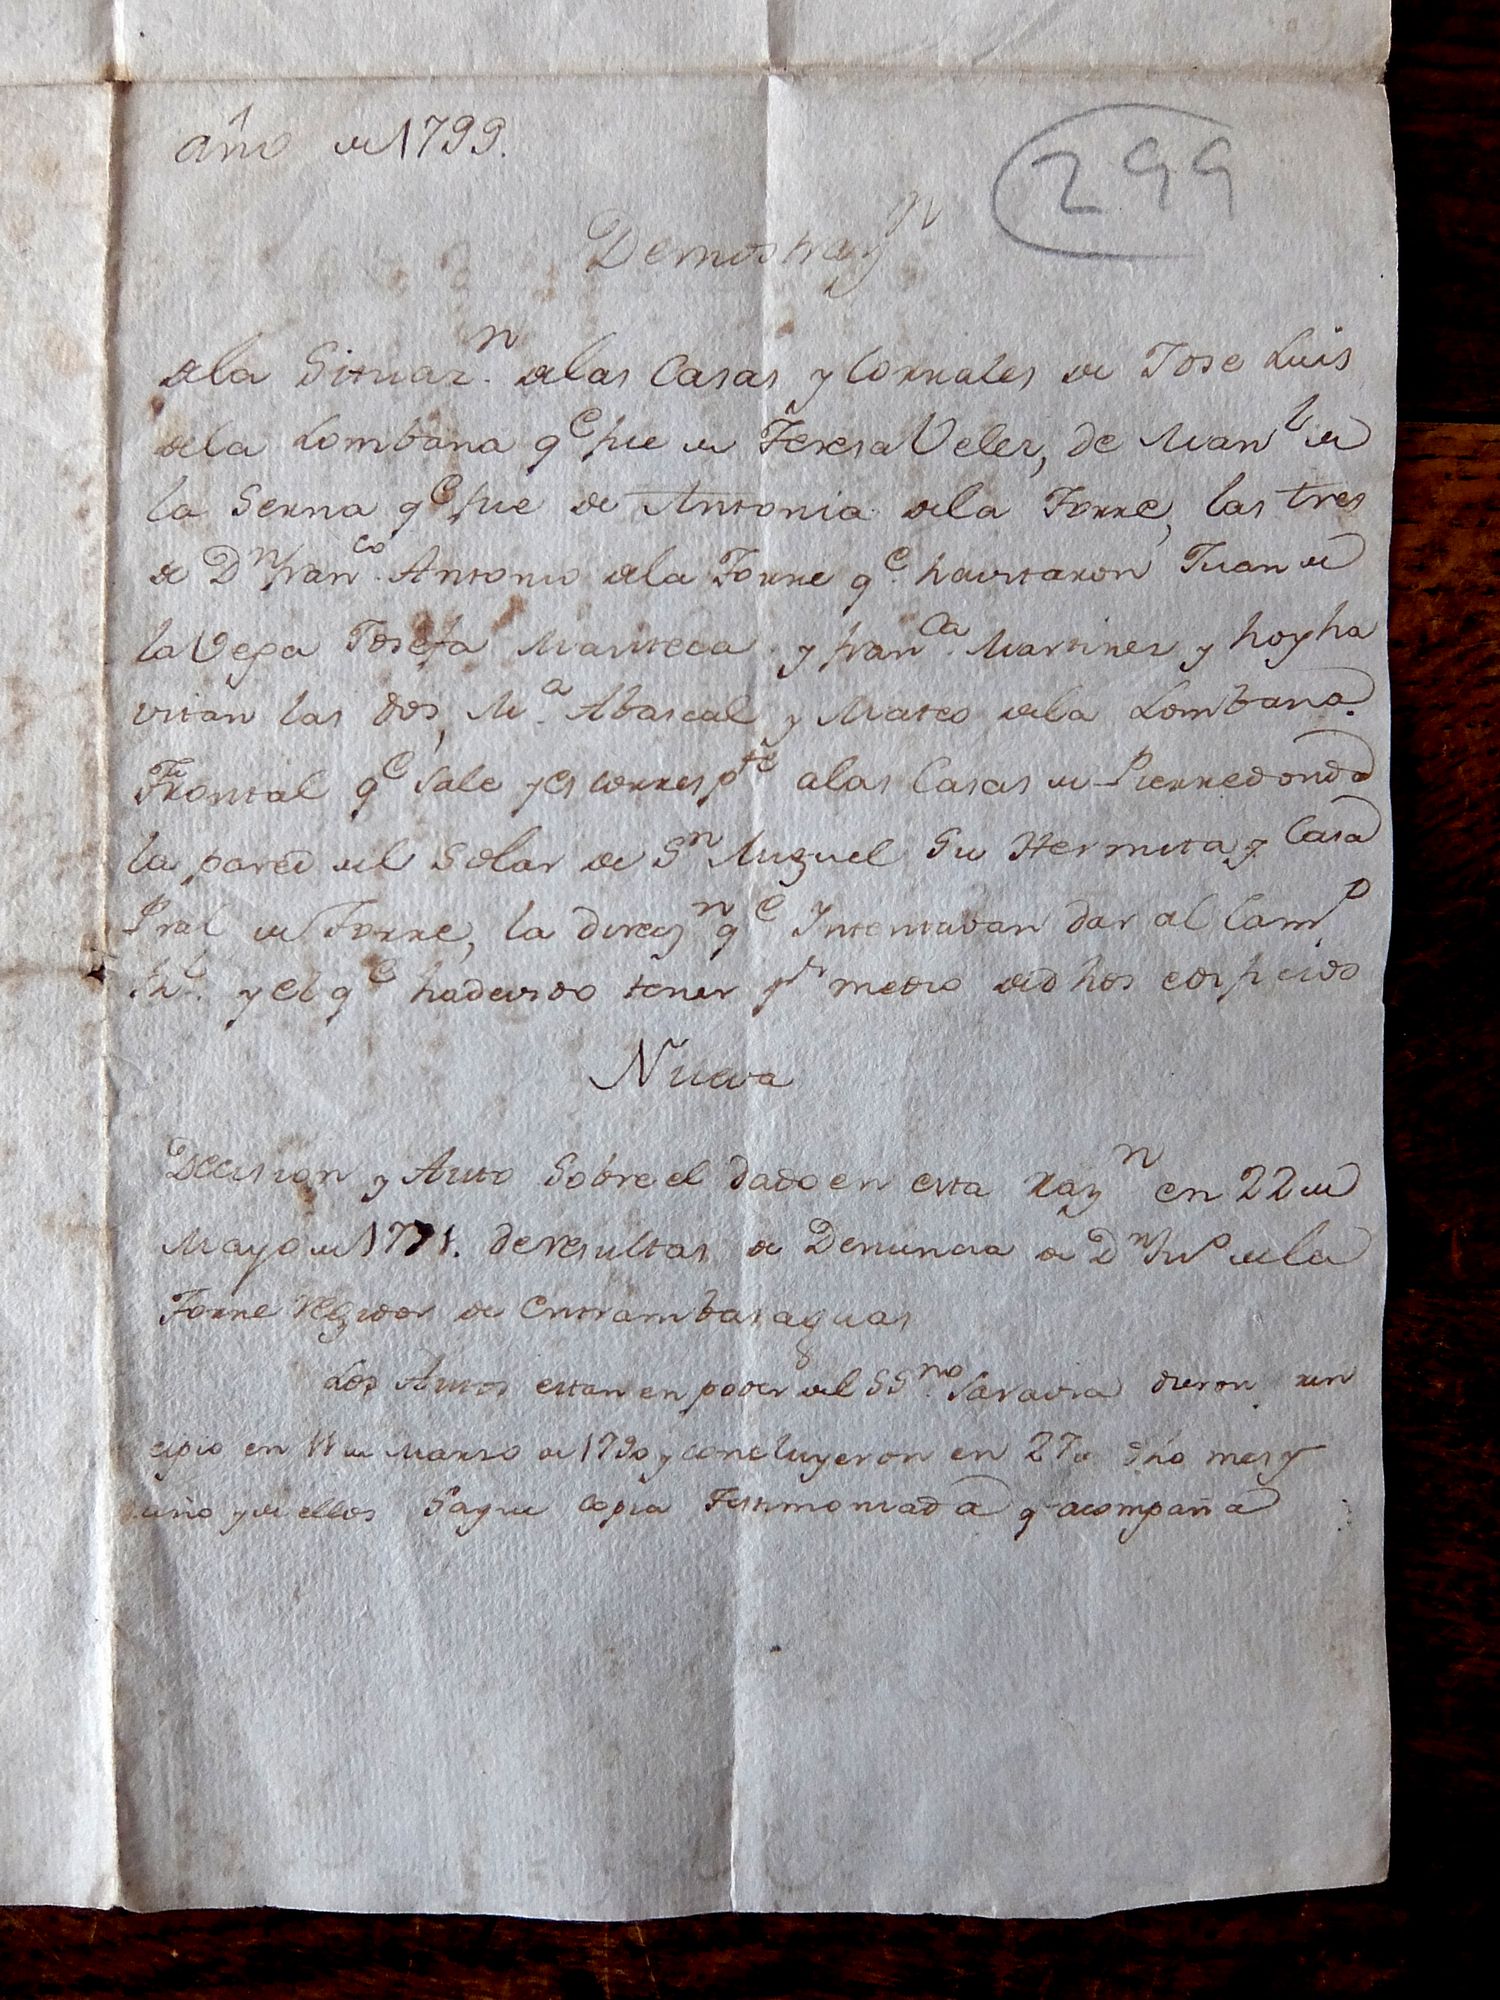 año de 1799.
299
Demostraz.n
de la Situaz.n de las Casas y Corrales de Jose Luis
de la Lombana q.e fue de Teresa Velez, de Man.l de
la Serna q.e fue de Antonia de la Torre, las tres
de D.n fran.co Antonio de la Torre q.e havitaron Juan de
la Vega Josefa Manteca y fran.ca Martinez y hoy ha
vitan las dos, M.a Abascal y Mateo de la Lombana.
Frontal q.e Sale y es corresp.te a las Casas de Pierredonda
la pared del Solar de S.n Miguel Su Hermita y Casa
Pral de Torre, la direcz.n q.e Intentaban dar al Cam.o
y el q.e ha devido tener p.r medio de dhos edificios
Nueva
Decision y Auto Sobre el dado en esta Raz.n en 22 de
Mayo de de resultas de Denuncia de D.n de la
Torre Regidor de Entrambasaguas
Los Autos estan en poder del SS.no Saravia dieron
cipio en 11 de Marzo de 1790 y concluyeron en 27 de dho mes y
año y de ellos Saque Copia Testimoniada q acompaña